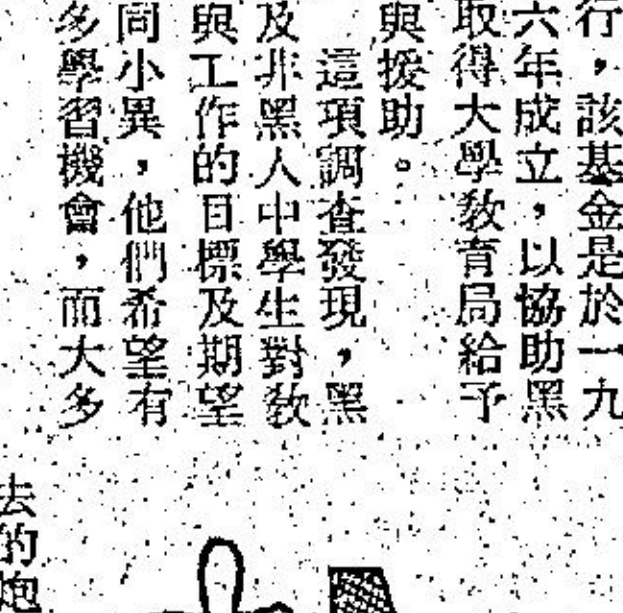 行，該基金是於一九
六年成立，以協助黑
取得大學教育局給予
與援助。
這項調查發現，黑
及非黑人中學生對教
與工作的目標及期望
同小異，他們希望有
多學習機會，而大多
去的炮